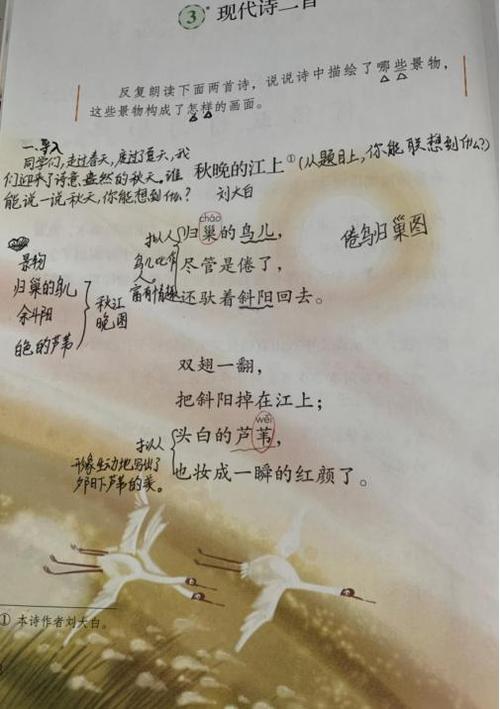 3 现代诗二首
反复朗读下面两首诗，说说诗中描绘了哪些景物，
这些景物构成了怎样的画面。
一、导入
同学们，走过春天，度过了夏天，我
们迎来了诗意盎然的秋天，谁
能说一说秋天，你能想到什么？
秋晚的江上① (从题目上，你能联想到什么?)
刘大白
cháo
拟人 归巢的鸟儿，
鸟儿比作
人 尽管是倦了，
富有情趣 还驮着斜阳回去。
倦鸟归巢图
景物
归巢的鸟儿
余斜阳
白色的芦苇
秋江
晚图
双翅一翻，
把斜阳掉在江上；
wěi
拟人 头白的芦苇，
也妆成一瞬的红颜了。
形象生动地写出了
夕阳下芦苇的美。
① 本诗作者刘大白。